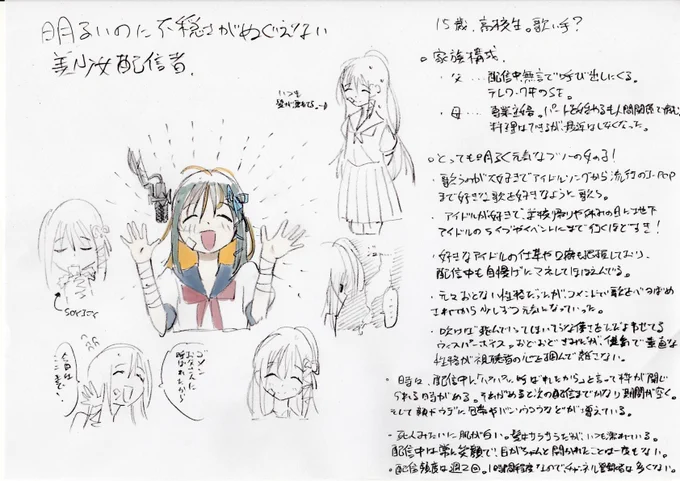 明るいのに不穏さがぬぐえない
美少女配信者.
いつも
髪が濡れてる。
SOYSOYC
ゴメン
お父さんに
呼ばれたから〜
今日は
ここまで、
15歳.高校生。歌い手?
○家族構成.
・父…配信中無言で呼び出しにくる。
テレワーク中のSE。
・母…専業主婦。パートを始めるも人間関係で
料理はできるが最近はしなくなった。
○とっても明るく元気な女の子!
・歌うのが大好きでアイドルソングから流行のJ-POP
まで好きな歌を好きなように歌う。
・アイドルが好きで、学校帰りや休みの日に地下
アイドルのライブやイベントにまで行くほどすき!
・好きなアイドルの仕草や口癖も把握しており、
配信中も自慢げにマネしてほほえんでる。
・元々おとなしい性格だったがコメントで歌をべつぼめ
されてから少しずつ元気になっていった。
ウィスパーボイス。おどおどするたが、健気で垂直な
性格が視聴者の心を掴んで離さない。
・時々、配信中に「パパに呼ばれたから」と言って枠が閉じ
られる時がある。それがあると次の配信までかなり期間が空く。
そして額やウデに包帯やバンソウコウなどが増えている。
・死人みたいに肌が白い。髪はサラサラだが、いつも濡れている。
配信中は常に笑顔で、目がちゃんと開かれたことは一度もない。
・配信頻度は週2回。1時間程度なので、チャンネル登録者は多くない。